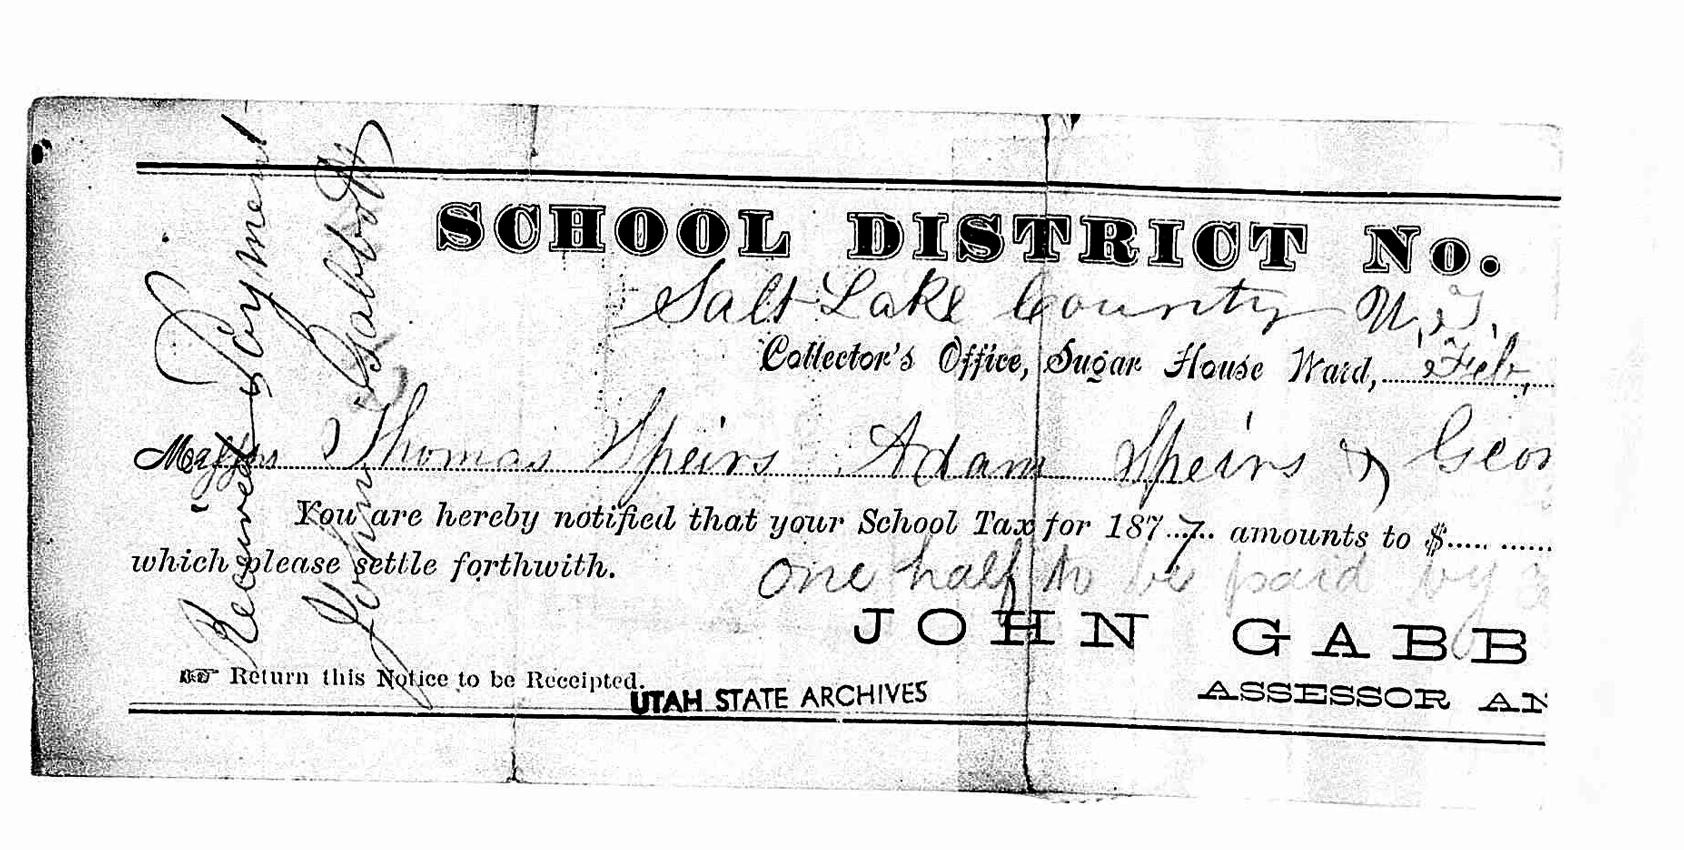 SCHOOL DISTRICT No.
Salt Lake County U.T.
Collector's Office, Sugar House Ward, Feb,
Messrs Thomas Speirs Adam Speirs & Geor
You are hereby notified that your School Tax for 1877 amounts to $
which please settle forthwith.
one half to be paid by
JOHN GABB
☞ Return this Notice to be Receipted.
ASSESSOR AN
UTAH STATE ARCHIVES
Received Payment
John Gabbott